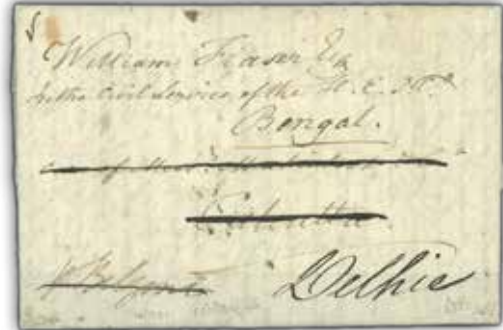 William Fraser Esq
In the Civil Service of the H. E. I. Co
Bengal.
of
Calcutta
Delhie